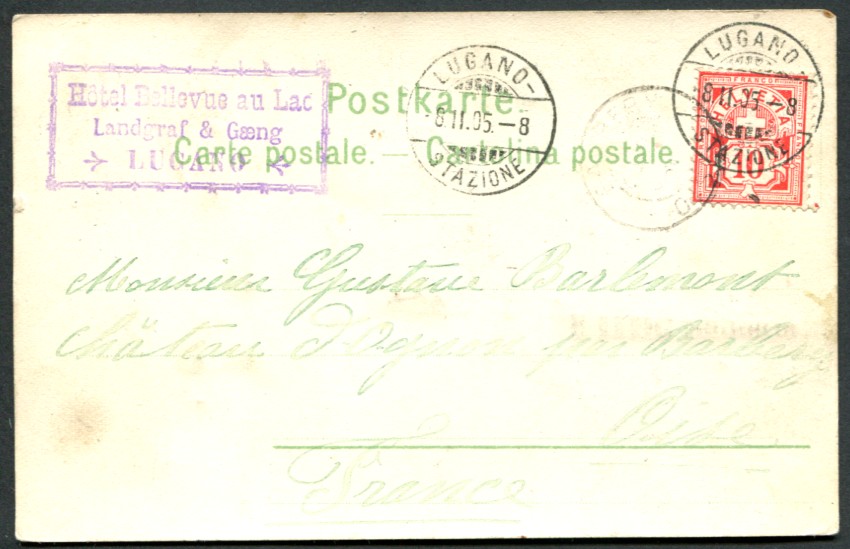 Hôtel Bellevue au Lac
Landgraf & Gæng
LUGANO
Postkarte.
Carte postale. — Cartolina postale.
LUGANO
8.II.05.-8
STAZIONE
LUGANO
8.II.05.-8
STAZIONE
FRANCO
HELVETIA
10
Monsieur Gustave Barlemont
Château d'Ognon par Barbery
Oise
France